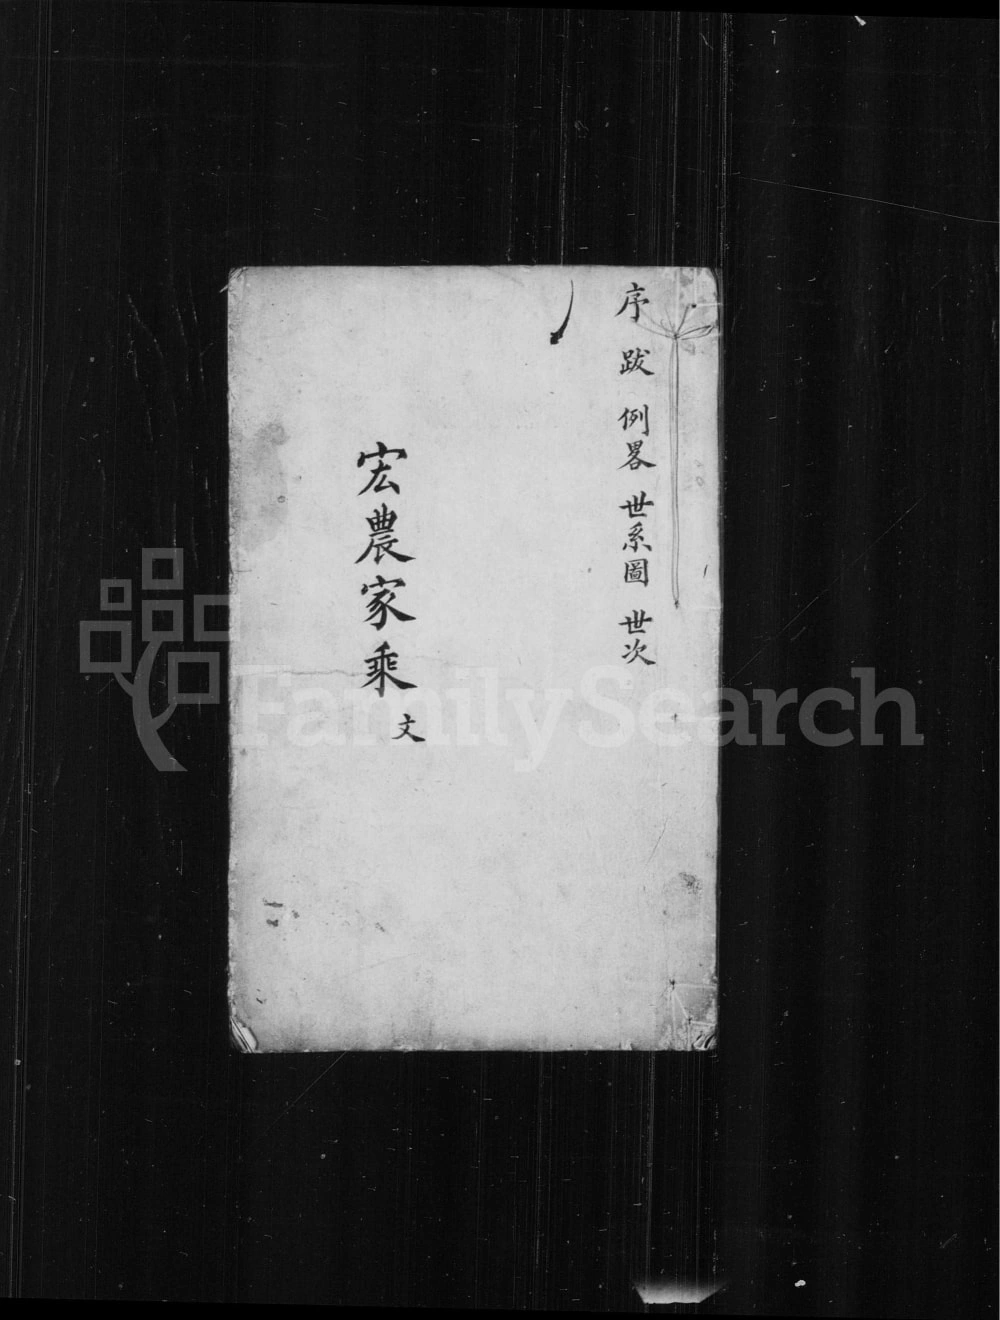 序 跋 例畧 世系圖 世次
宏農家乘 文
FamilySearch